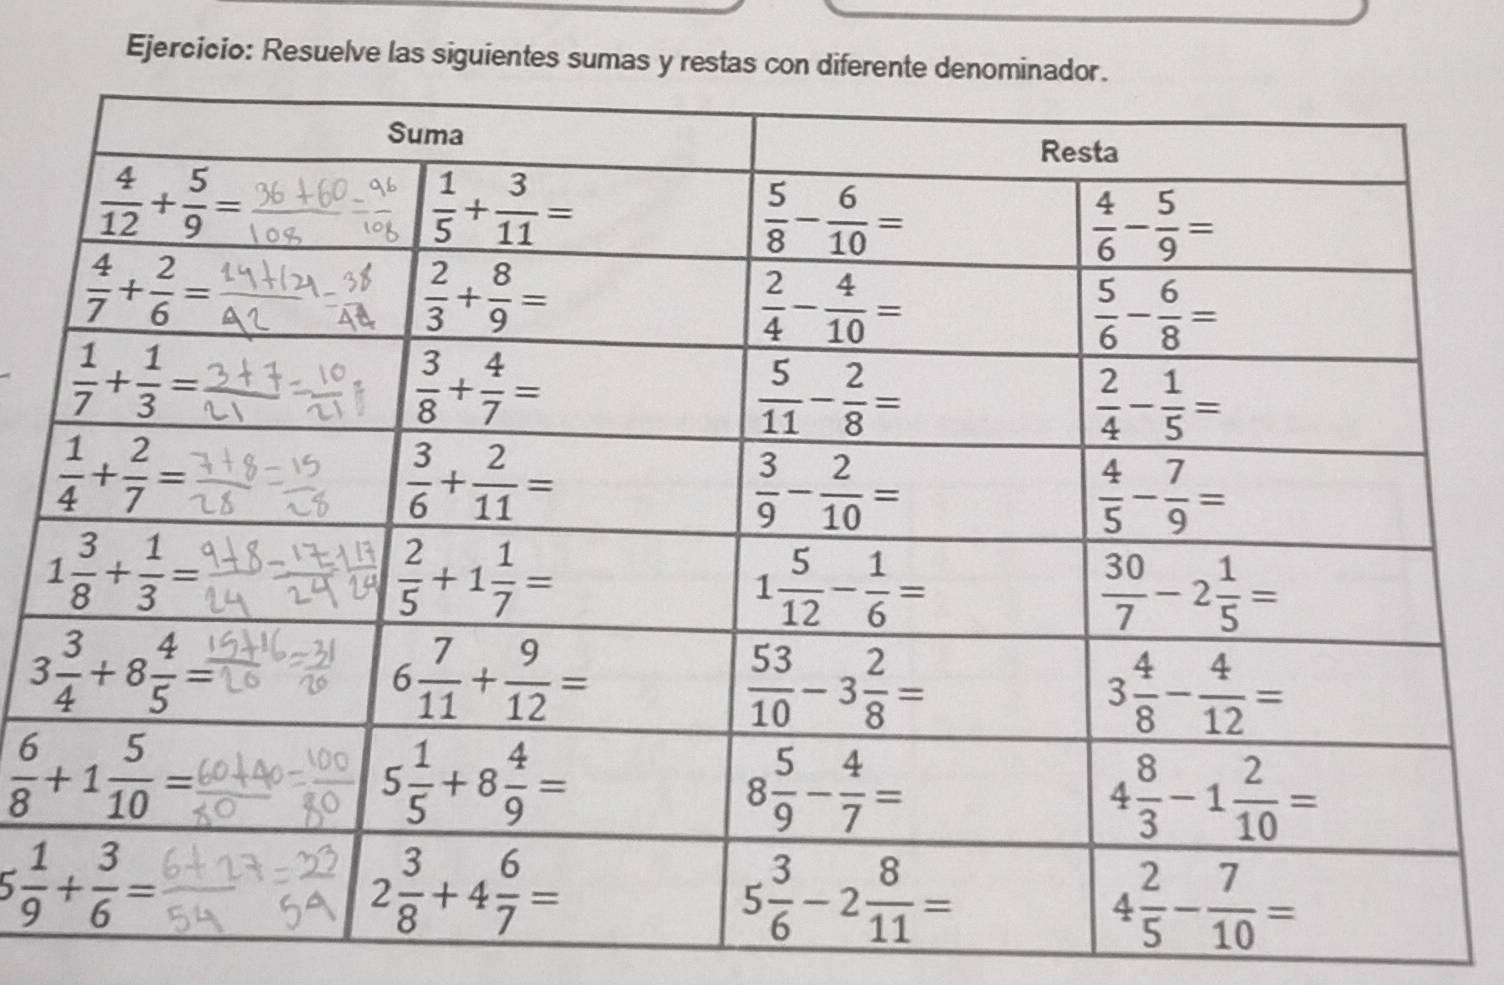 Ejercicio: Resuelve las siguientes sumas y restas con diferente denominador.
Suma Resta
4/12 + 5/9 = 36+60/108 = 96/108 1/5 + 3/11 = 5/8 − 6/10 = 4/6 − 5/9 =
4/7 + 2/6 = 24+14/42 = 38/42 2/3 + 8/9 = 2/4 − 4/10 = 5/6 − 6/8 =
1/7 + 1/3 = 3+7/21 = 10/21 3/8 + 4/7 = 5/11 − 2/8 = 2/4 − 1/5 =
1/4 + 2/7 = 7+8/28 = 15/28 3/6 + 2/11 = 3/9 − 2/10 = 4/5 − 7/9 =
1 3/8 + 1/3 = 9+8/24 = 17/24 = 1 17/24 2/5 + 1 1/7 = 1 5/12 − 1/6 = 30/7 − 2 1/5 =
3 3/4 + 8 4/5 = 15+16/20 = 31/20 6 7/11 + 9/12 = 53/10 − 3 2/8 = 3 4/8 − 4/12 =
6/8 + 1 5/10 = 60+40/80 = 100/80 5 1/5 + 8 4/9 = 8 5/9 − 4/7 = 4 8/3 − 1 2/10 =
5 1/9 + 3/6 = 6+27/54 = 33/54 2 3/8 + 4 6/7 = 5 3/6 − 2 8/11 = 4 2/5 − 7/10 =